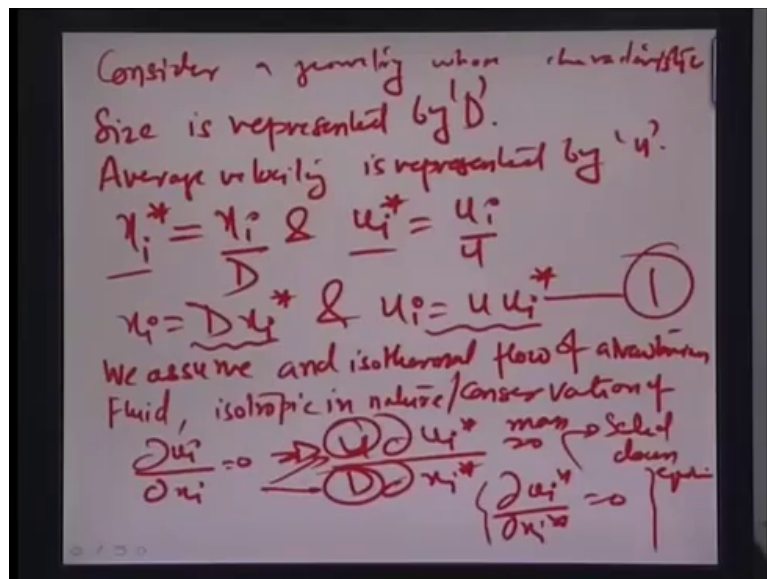 Consider a geometry whose characteristic
Size is represented by 'D'.
Average velocity is represented by 'u'.
xi* = xi/D & ui* = ui/u
xi = D xi* & ui = u ui* — 1
We assume and isothermal flow of a Newtonian
Fluid, isotropic in nature/Conservation of
mass
∂ui/∂xi = 0 ⇒ u ∂ui*/D ∂xi* = 0 → Scaled down
{∂ui*/∂xi* = 0